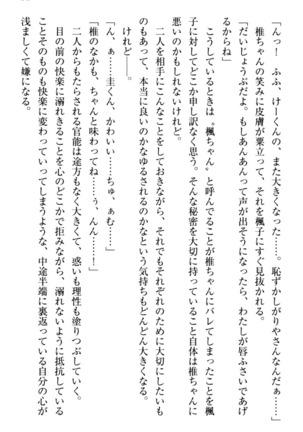 「んっ！ ふふ、けーくんの、また大きくなった……。恥ずかしがりやさんなんだぁ……」
椎ちゃんの笑みに皮膚が粟立って、それを楓子にすぐに見抜かれる。
「だいじょうぶだよ。もしあんあんって声が出そうになったら、わたしが唇ふさいであげ
るからね」
こうしているときは〝楓ちゃん〟と呼んでることが椎ちゃんにバレてしまったことを楓
に対してどこか申し訳なく思う。そんな秘密を大切に持っていること自体は椎ちゃんに
悪いのかもしれないけれど。
二人を相手にこんなことをしておきながら、それでもそれぞれのために大切にしたいも
のもあって、本当に良いのかなゆるされるのかなという気持ちもどんどん大きくなる。
けれど――。
「ん、ぁ……圭くん、かわいい……ちゅ、ぁむ……」
「椎のなかも、ちゃんと味わってね……ぅ、んん……！」
二人からもたらされる官能は途方もなく大きくて、惑いも理性も塗りつぶしていく。
目の前の快楽に溺れきることを心のどこかで拒みながら、溺れないように抵抗している
ことそのものも快楽に変わっていってしまうような、中途半端に裏返っている自分の心が
浅ましくて嫌になる。